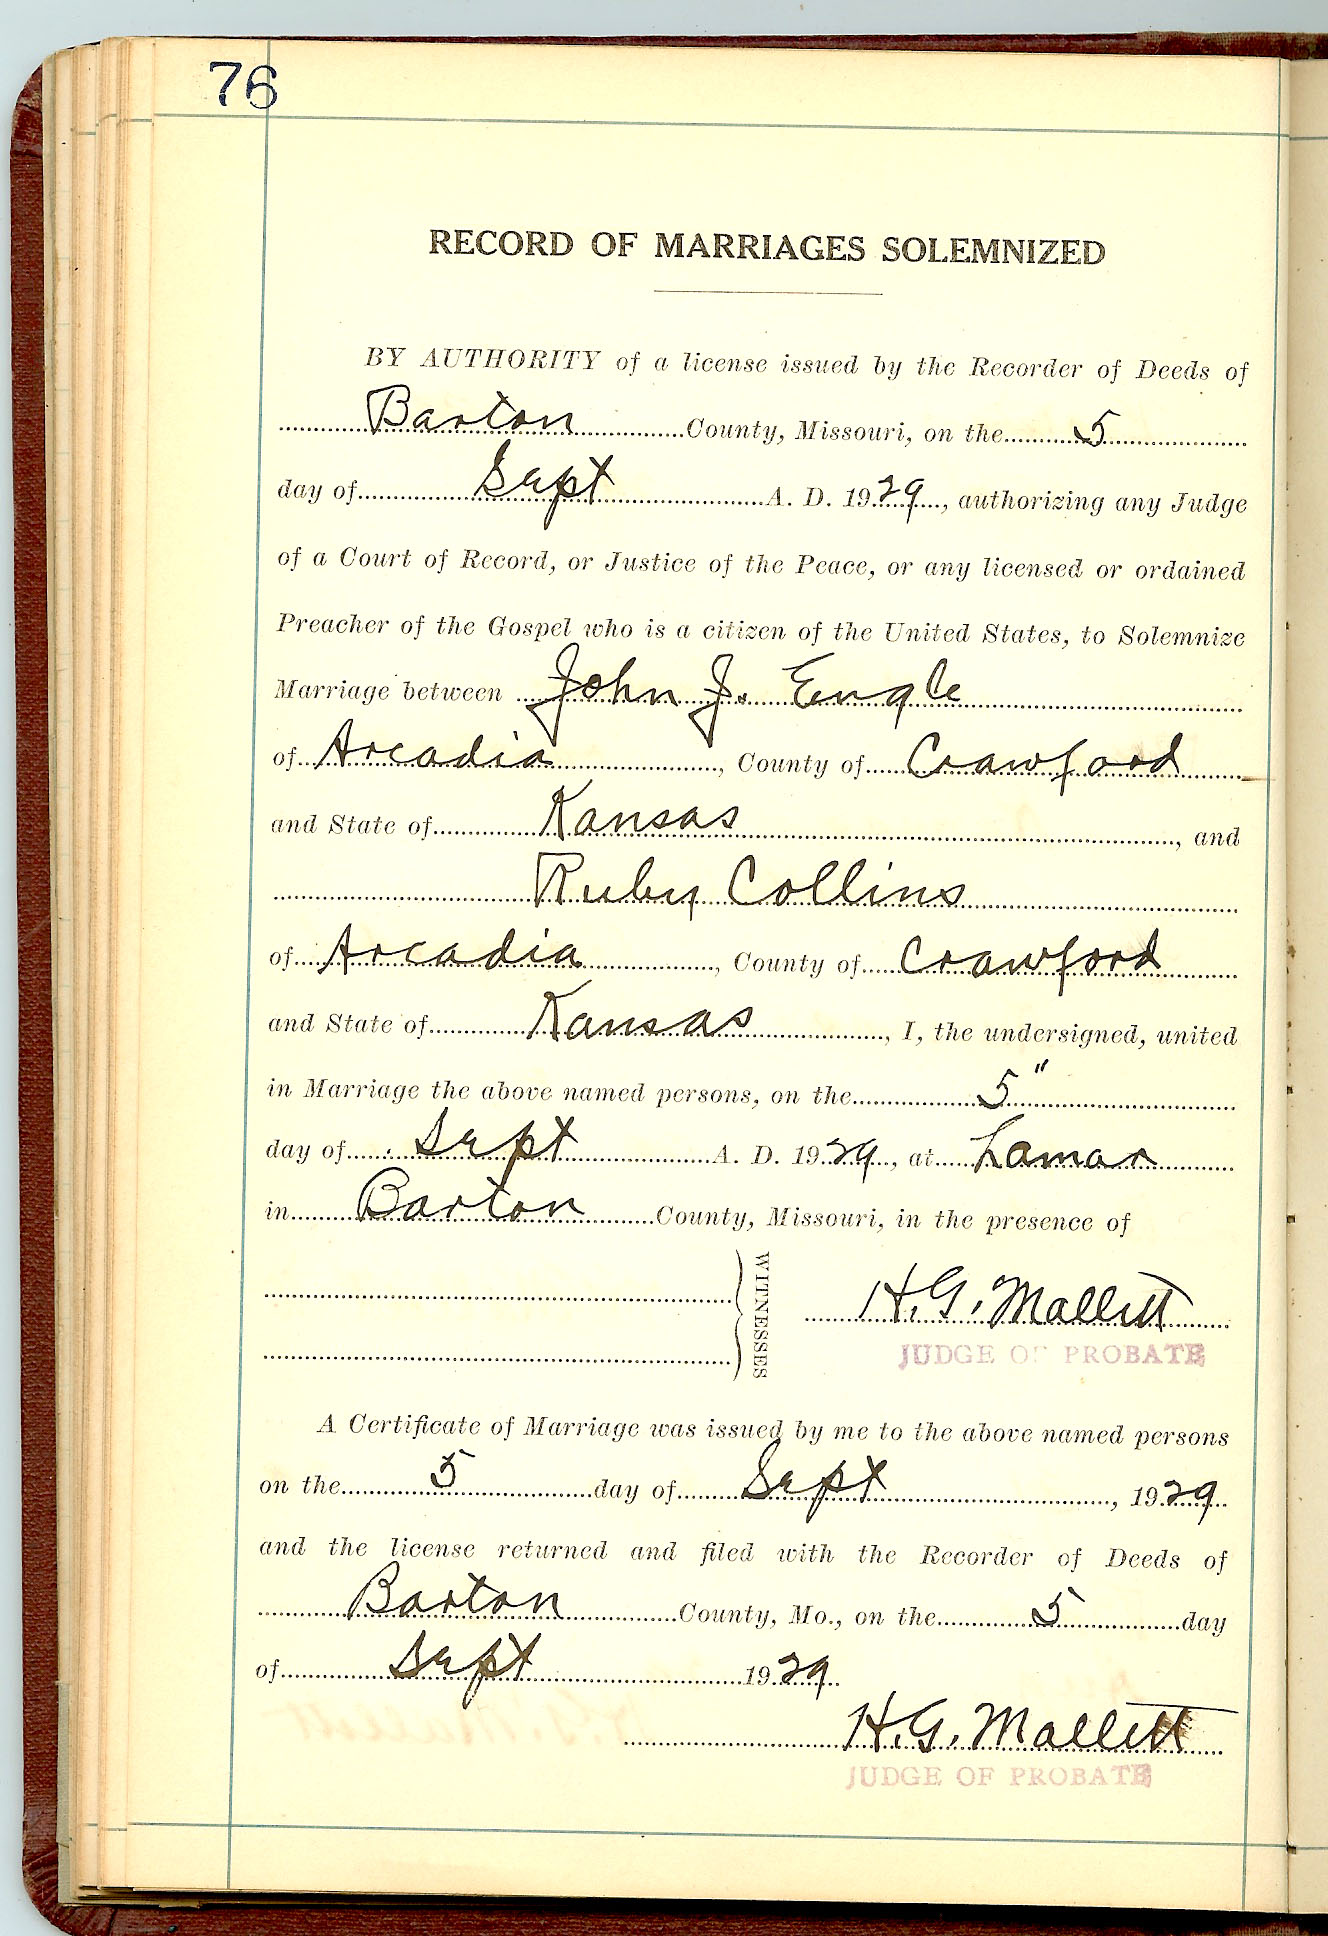 76
RECORD OF MARRIAGES SOLEMNIZED
BY AUTHORITY of a license issued by the Recorder of Deeds of
Barton County, Missouri, on the 5
day of Sept A. D. 1929, authorizing any Judge
of a Court of Record, or Justice of the Peace, or any licensed or ordained
Preacher of the Gospel who is a citizen of the United States, to Solemnize
Marriage between John J. Engle
of Arcadia, County of Crawford
and State of Kansas, and
Ruby Collins
of Arcadia, County of Crawford
and State of Kansas, I, the undersigned, united
in Marriage the above named persons, on the 5"
day of Sept A. D. 1929, at Lamar
in Barton County, Missouri, in the presence of
WITNESSES
H. G. Mallett
JUDGE OF PROBATE
A Certificate of Marriage was issued by me to the above named persons
on the 5 day of Sept, 1929
and the license returned and filed with the Recorder of Deeds of
Barton County, Mo., on the 5 day
of Sept 1929.
H. G. Mallett
JUDGE OF PROBATE